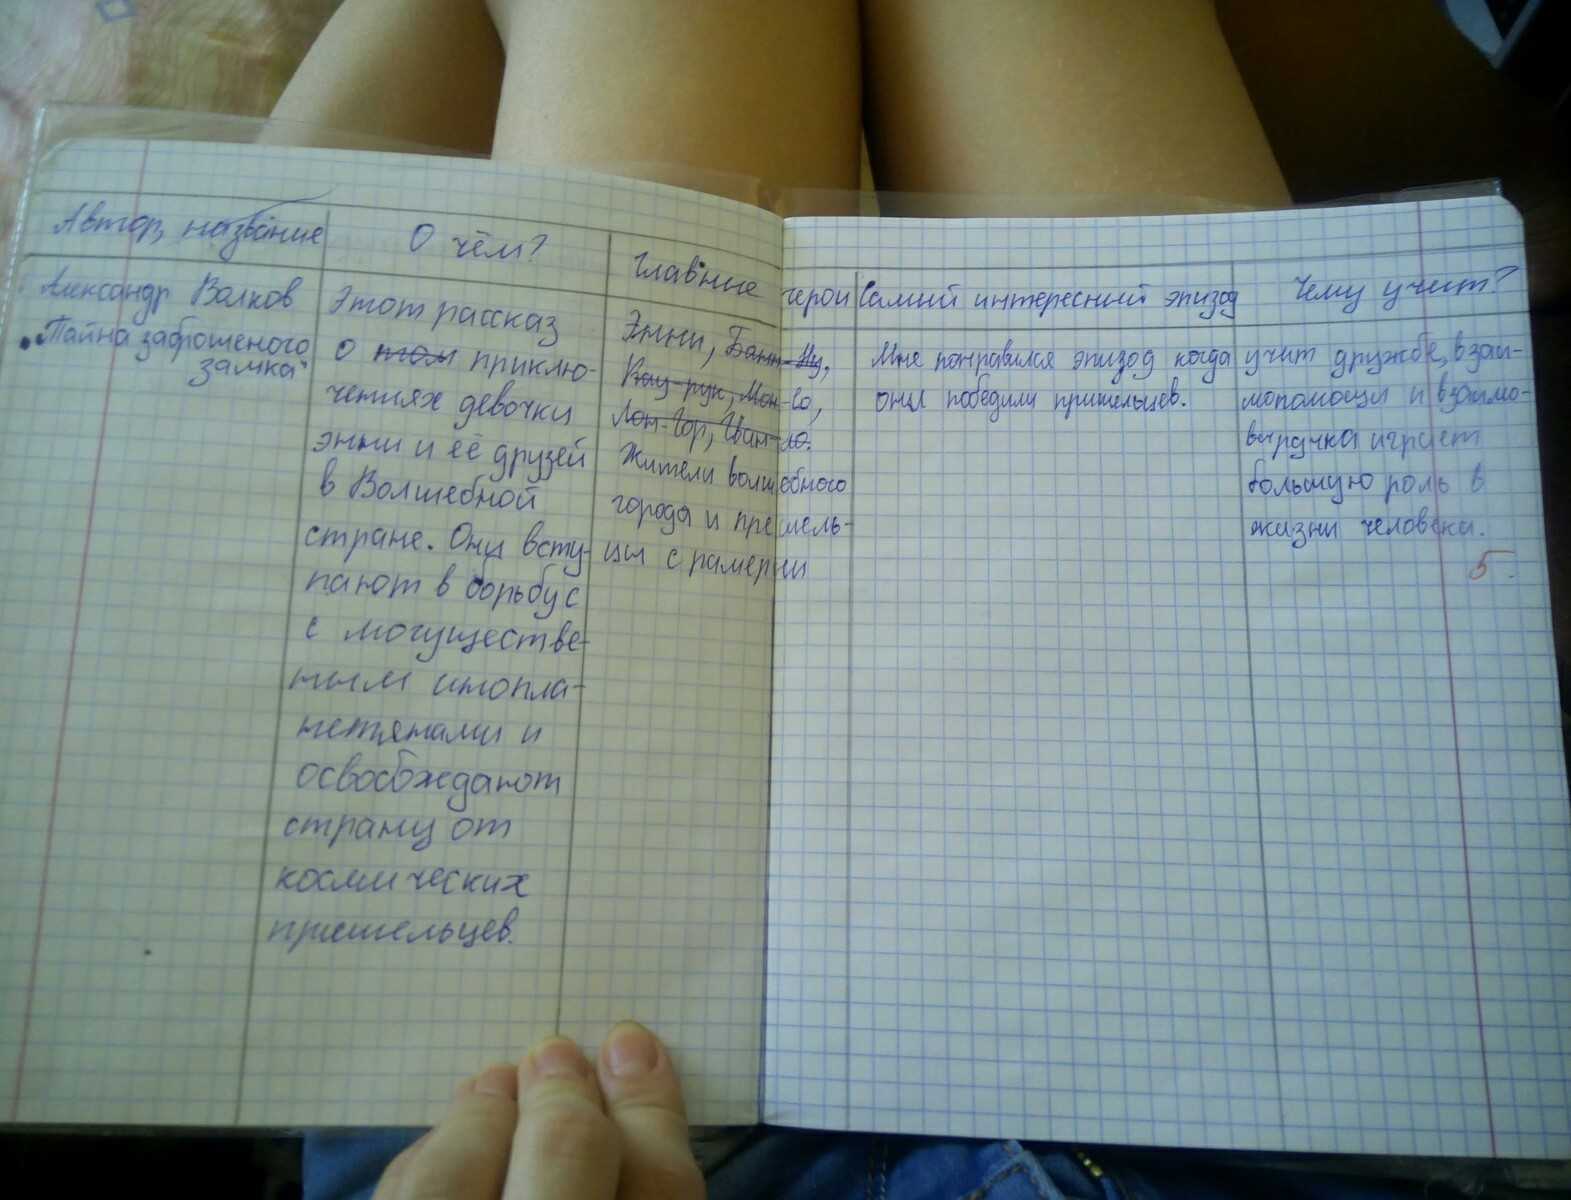 Автор, название
О чём?
Главные герои
Самый интересный эпизод
Чему учит?
Александр Волков
"Тайна заброшеного
замка"
Этот рассказ
о том приклю-
чениях девочки
энни и её друзей
в Волшебной
стране. Они всту-
пают в борьбу с
с могуществе-
ным инопла-
нетянами и
освобождают
страну от
космических
пришельцев.
Энни, Бан-Ну,
Кау-рук, Мон-Со,
Лон-Гор, Ильн-ло.
Жители волшебного
города и пришель-
цы с рамерии
Мне понравился эпизод когда
они победили пришельцев.
учит дружбе, взаи-
мопомощи и взаимо-
выручка играет
большую роль в
жизни человека.
5